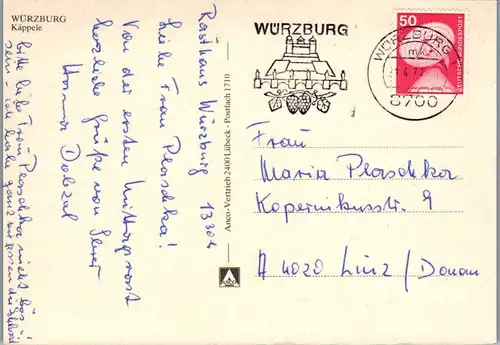 WÜRZBURG
Käppele
Rasthaus Würzburg 1330h
Liebe Frau Plaschka!
Von der ersten Mittagsrast
herzliche Grüße von Ihrer
Hanna
bitte liebe Frau Plaschka nicht bös
sein - ich habe ganz vergessen die
Anco-Vertrieb 2400 Lübeck · Postfach 1710
WÜRZBURG
WÜRZBURG
8700
50
DEUTSCHE BUNDESPOST
Frau
Maria Plaschka
Kopernikusstr. 9
A 4020 Linz / Donau